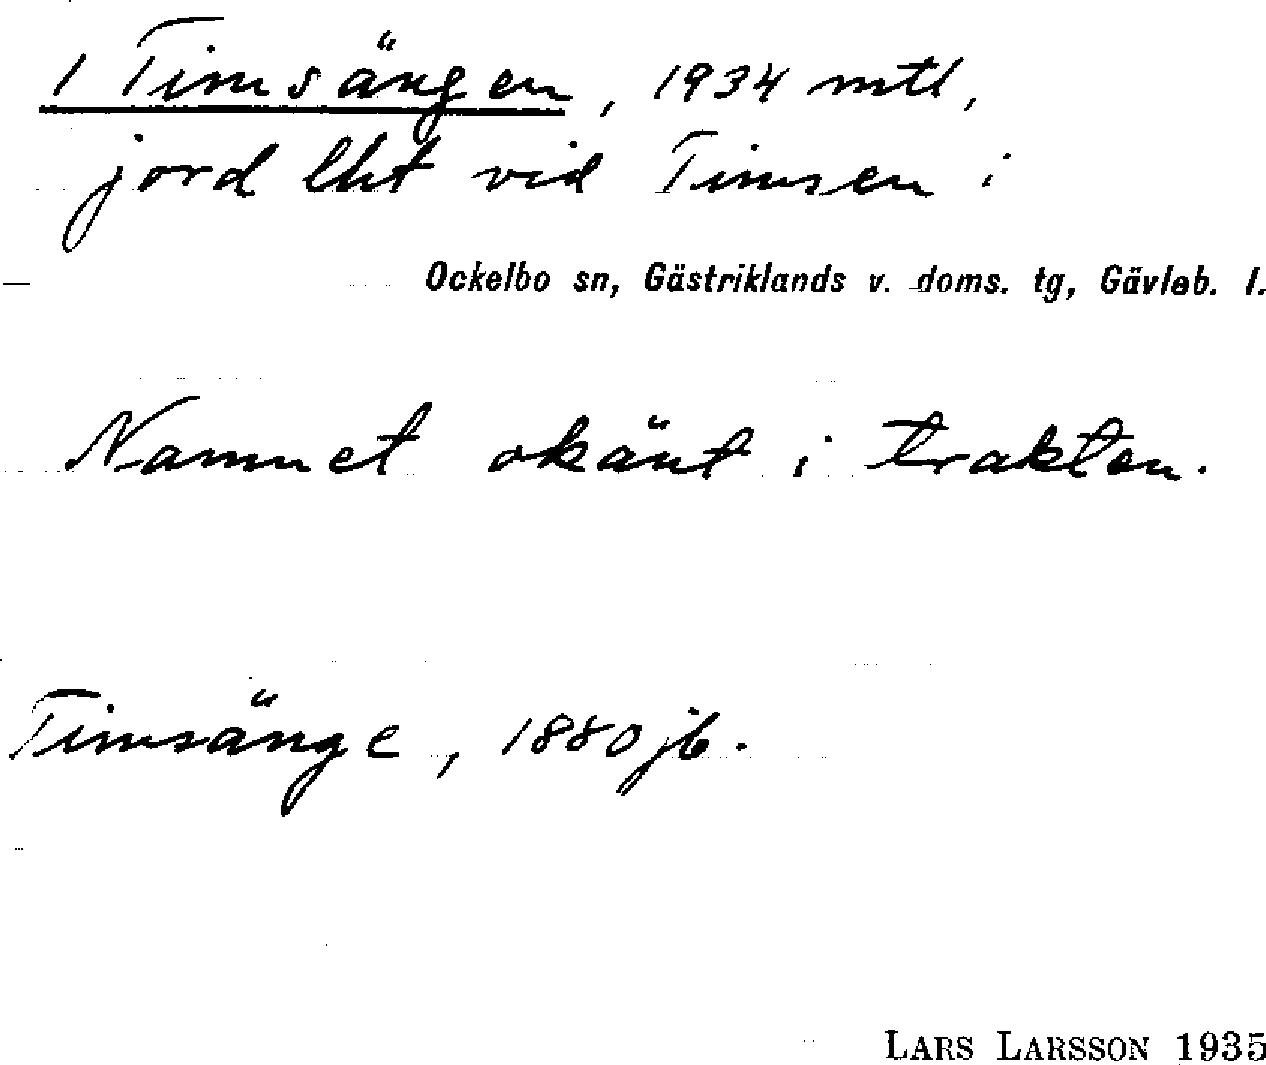 1 Timsängen, 1934 mtl,
jord lht vid Timsen i
Ockelbo sn, Gästriklands v. doms. tg, Gävleb. l.
Namnet okänt i trakten.
Timsänge, 1880 jb.
LARS LARSSON 1935